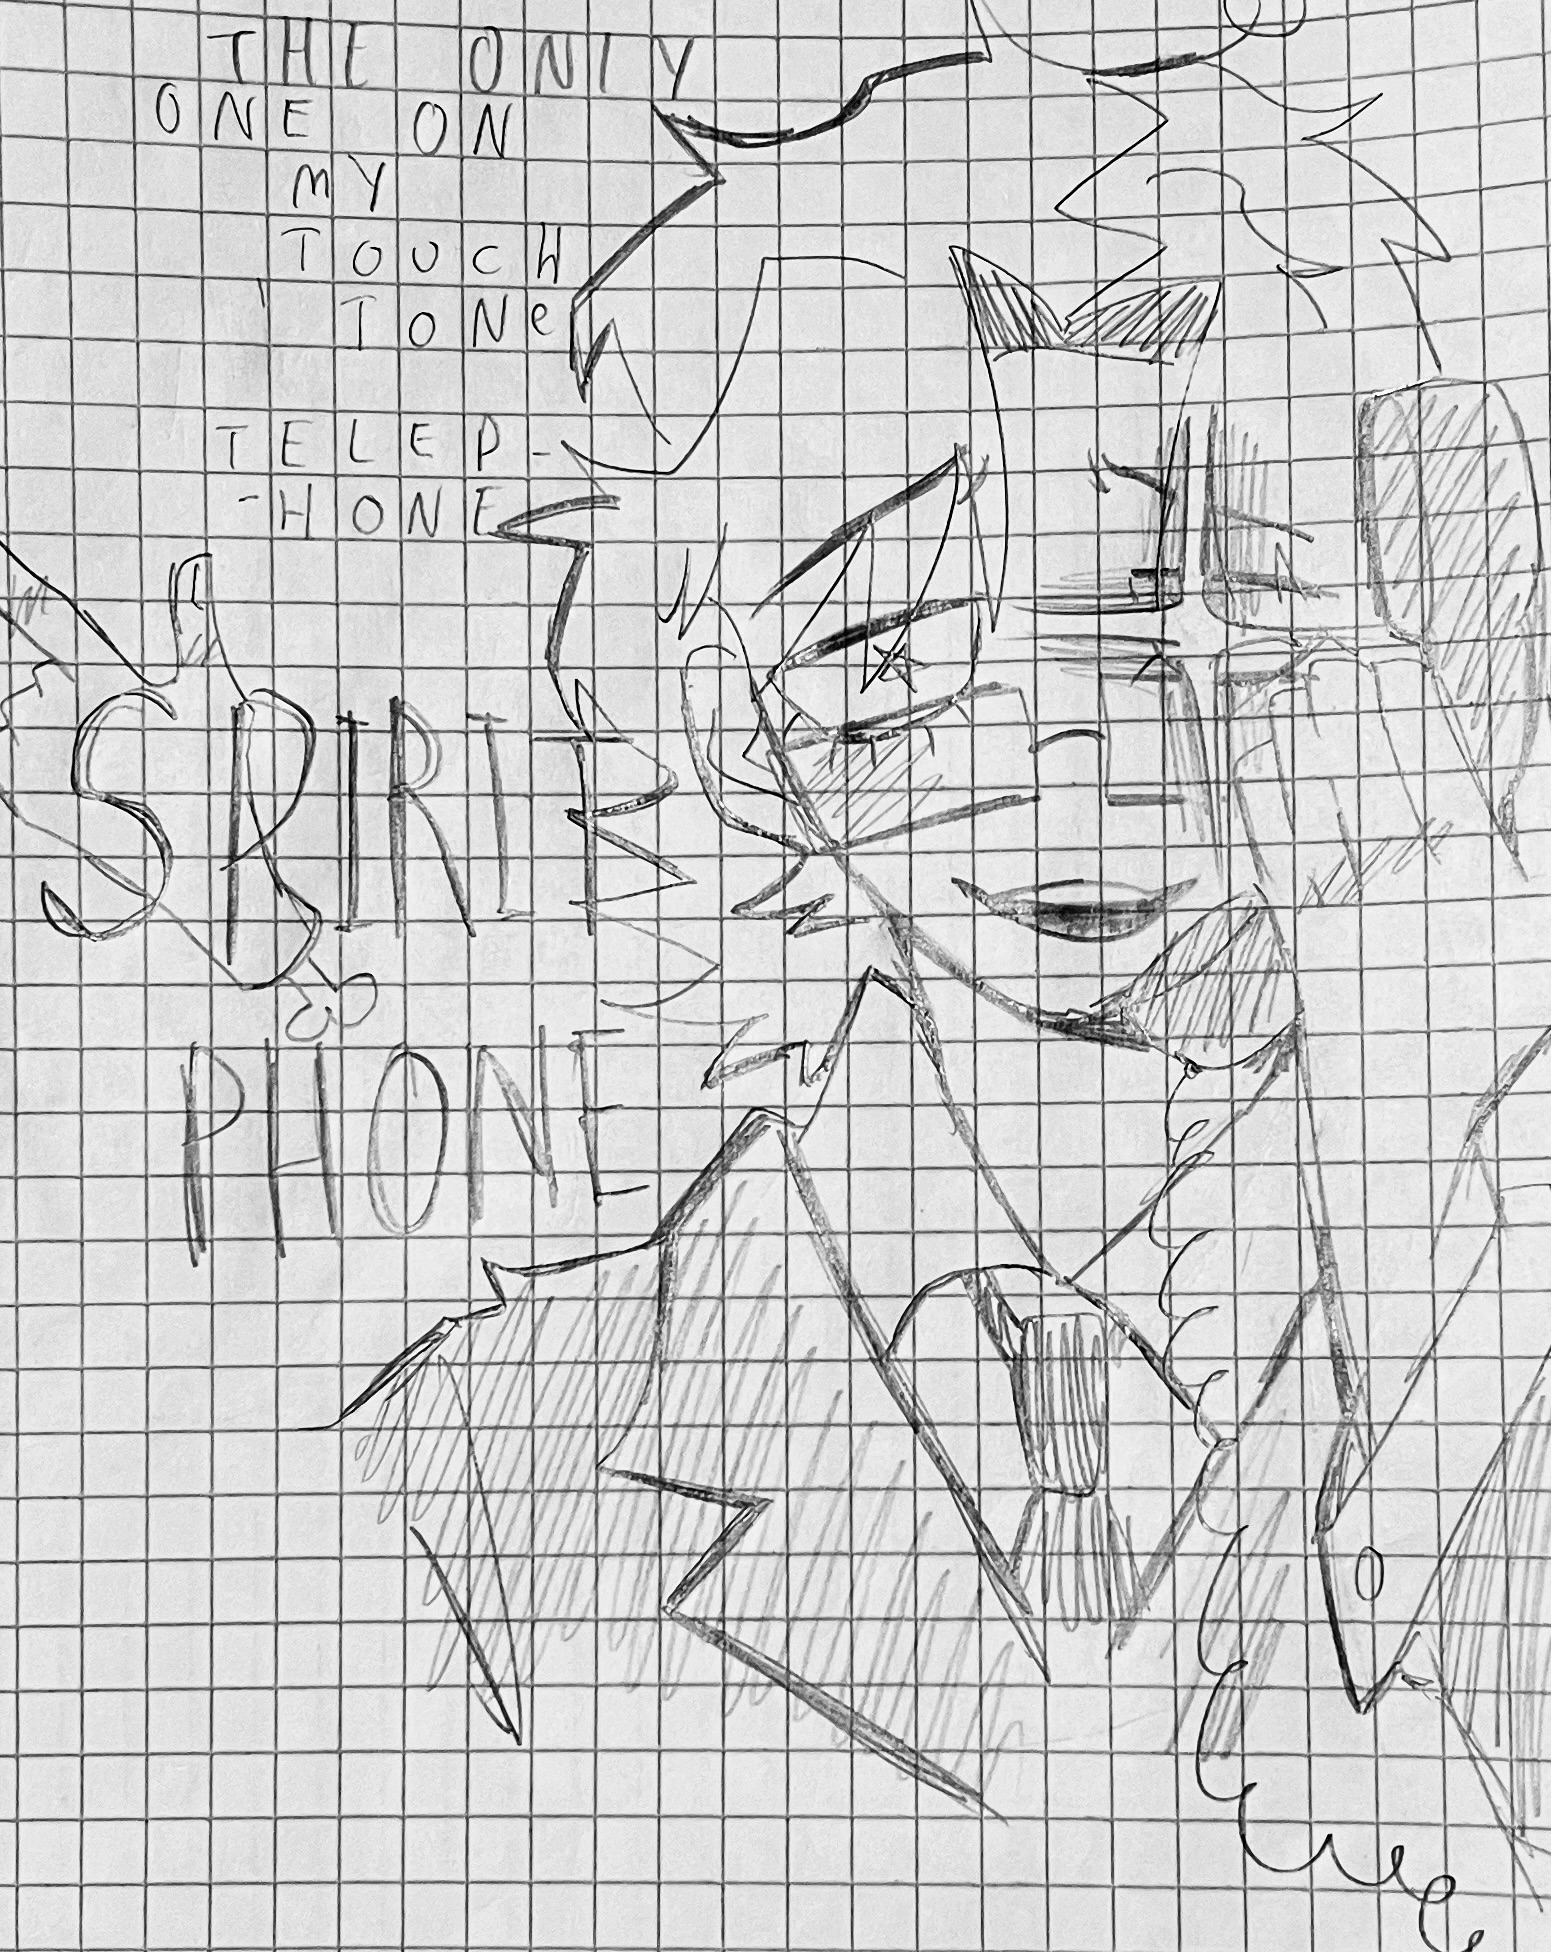 THE ONLY
ONE ON
MY
TOUCH
TONe
TELEP-
-HONE
SPIRIT
PHONE